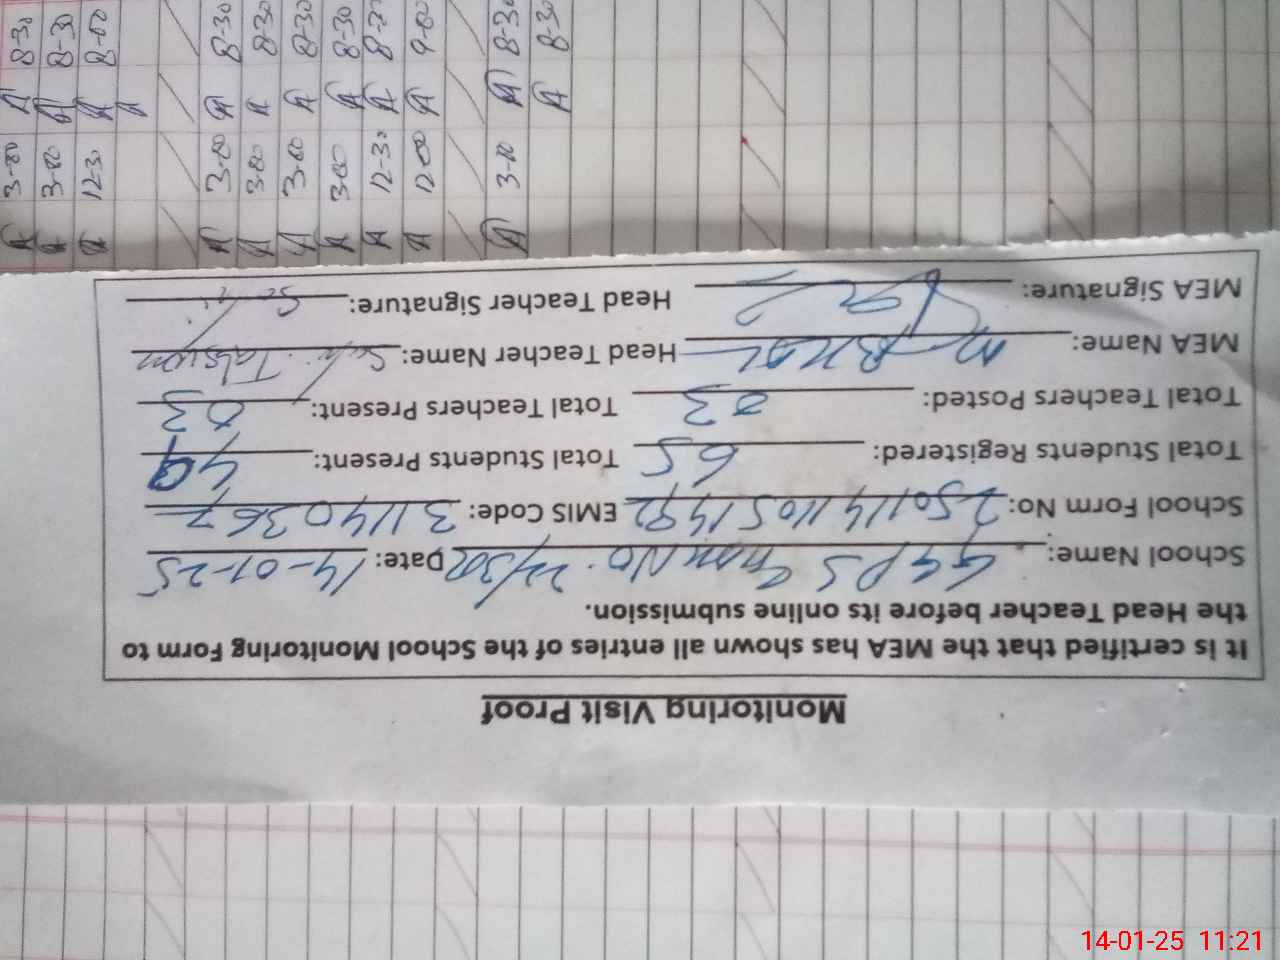 Monitoring Visit Proof
It is certified that the MEA has shown all entries of the School Monitoring Form to
the Head Teacher before its online submission.
School Name: GGPS No. 22/3 Date: 14-01-25
School Form No: 25011411051492 EMIS Code: 31140367
Total Students Registered: 65 Total Students Present: 49
Total Teachers Posted: 03 Total Teachers Present: 03
MEA Name: Head Teacher Name:
MEA Signature: Head Teacher Signature:
8-30 A 3-00 A
8-30 A 3-00 A
8-00 A 12-30 A
A
8-30 A 3-00 A
8-30 A 3-00 A
8-30 A 3-00 A
8-30 A 3-00 A
A 12-30 A
9-00 A 12-00 A
8-30 A 3-00 A
8-30 A
14-01-25 11:21